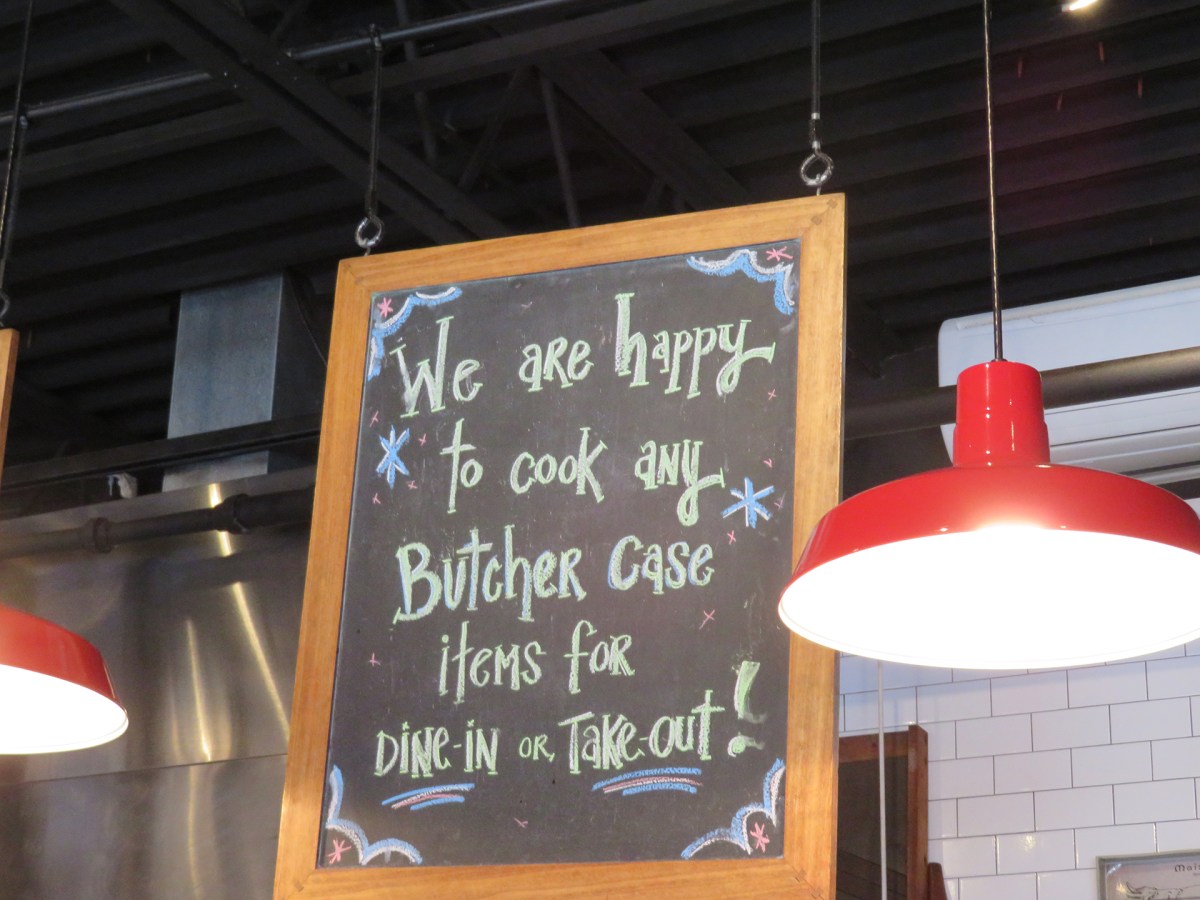 We are happy
to cook any
Butcher Case
items for
Dine-in or, Take-out!